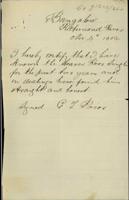 Bungalow
Richmond River
Nov 5th 1902
I hereby certify that I have
known the bearer Deva Singh
for the past two years and
in dealings have found him
straight and honest
Signed